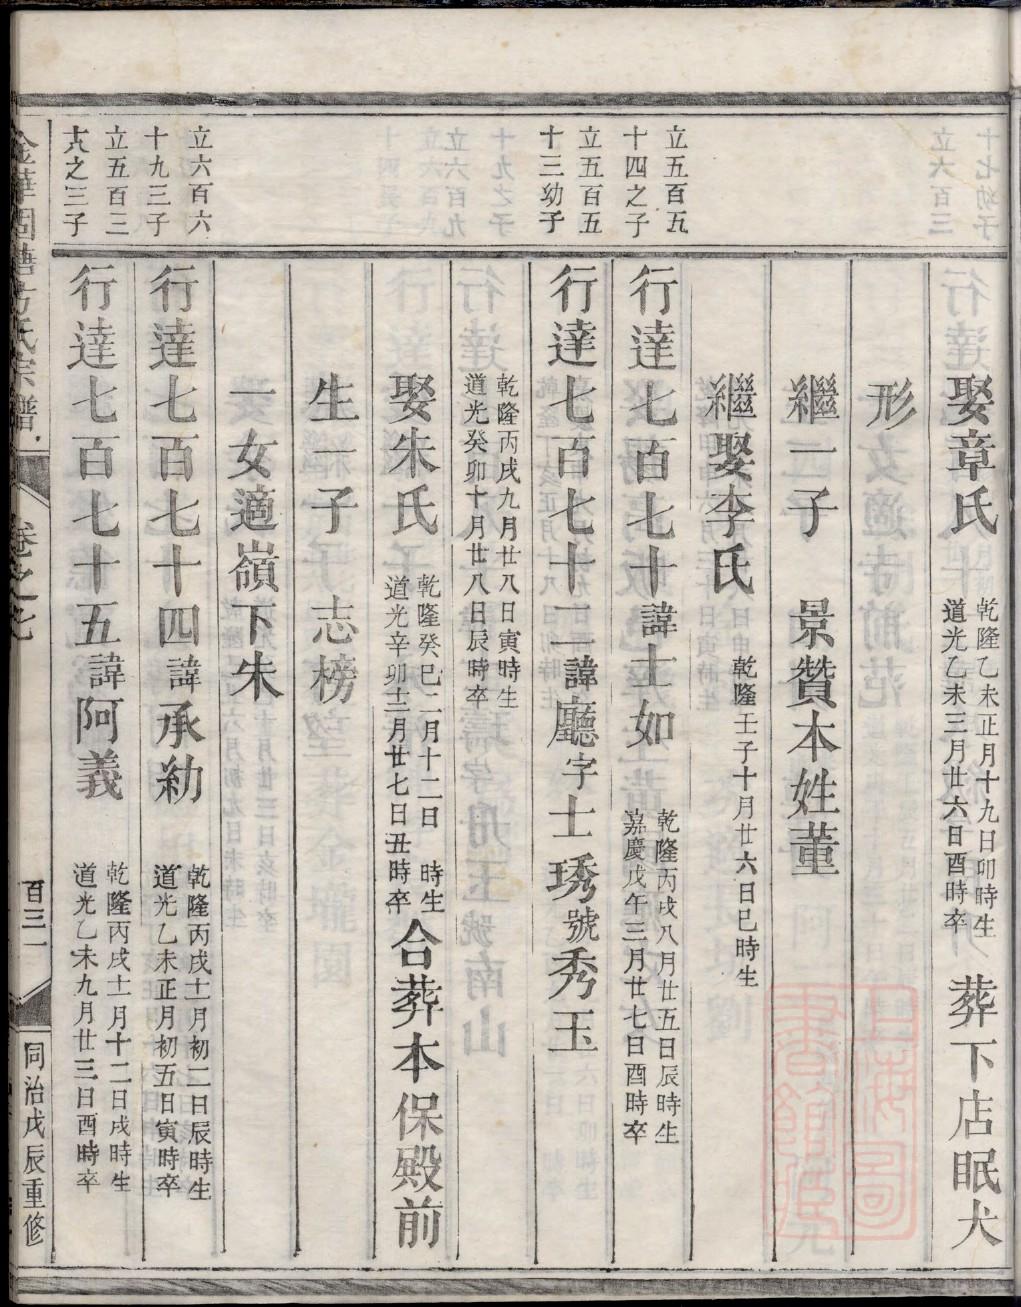 娶章氏 乾隆乙未正月十九日卯時生 道光乙未三月廿六日酉時卒 葬下店眠犬
形
繼一子 景贊本姓董
繼娶李氏 乾隆壬子十月廿六日巳時生
立五百九
十四之子
行達七百七十 諱士如 乾隆丙戌八月廿五日辰時生 嘉慶戊午三月廿七日酉時卒
立五百五
十三幼子
行達七百七十一 諱廳 字士琇 號秀玉
乾隆丙戌九月廿八日寅時生
道光癸卯十月廿八日辰時卒
娶朱氏 乾隆癸巳二月十二日 時生 道光辛卯十二月廿七日丑時卒 合葬本保殿前
生一子 志榜
一女適嶺下朱
立六百六
十九三子
行達七百七十四 諱承 乾隆丙戌十一月初二日辰時生 道光乙未正月初五日寅時卒
立五百三
十八之三子
行達七百七十五 諱阿義 乾隆丙戌十一月十二日戌時生 道光乙未九月廿三日酉時卒
卷之七
百三一
同治戊辰重修